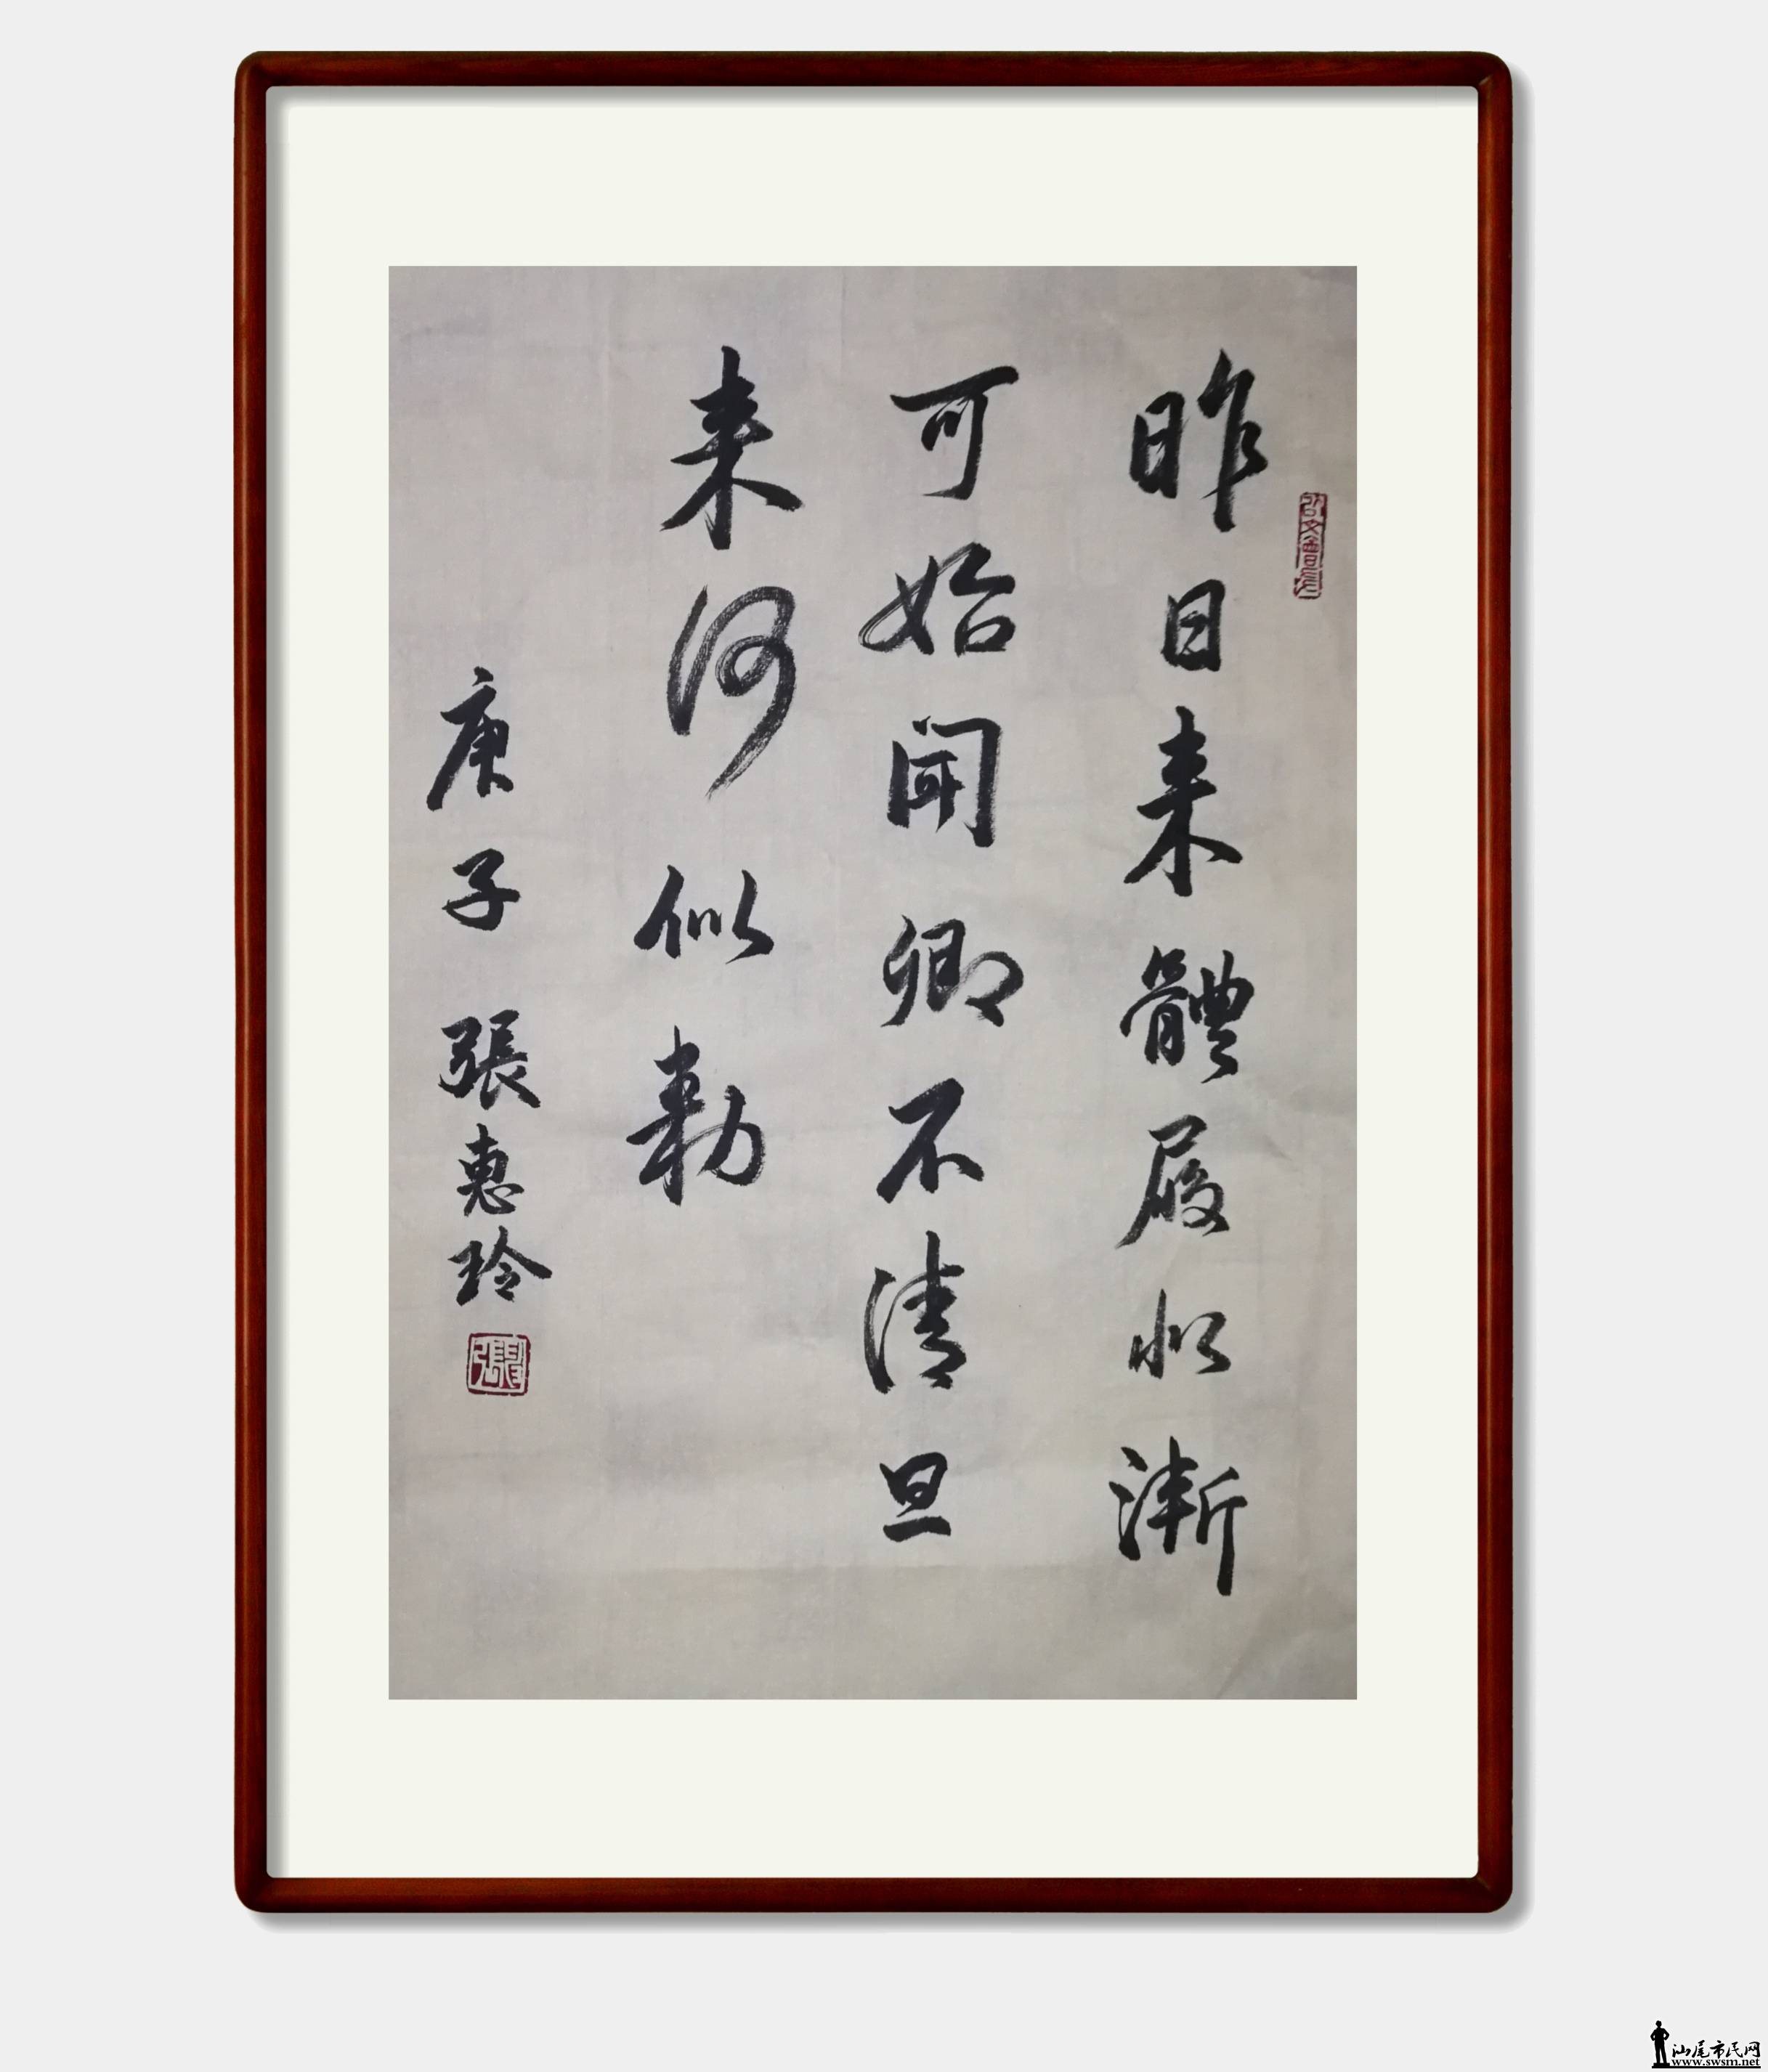 昨日来體履似漸
可始聞卿不清旦
来何似勅
庚子 張惠玲
汕尾市民网
www.swsm.net